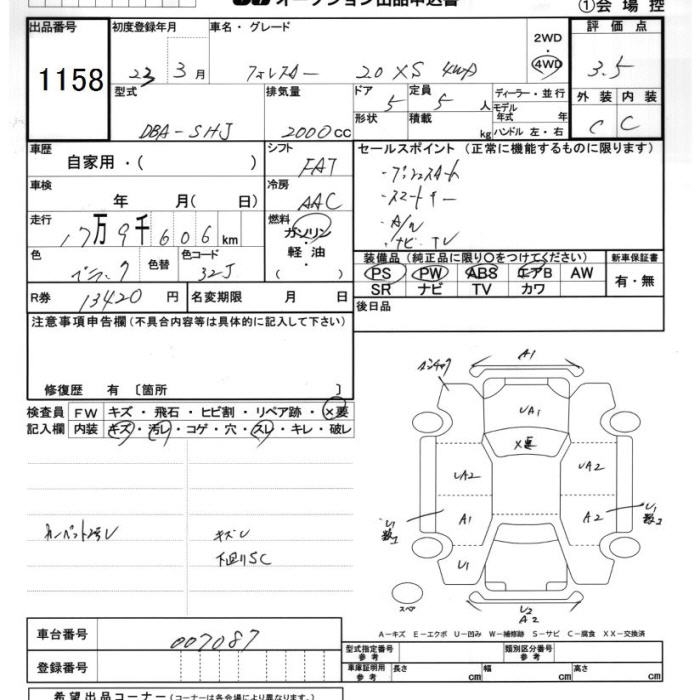 オークション出品申込書
①会場控
出品番号 初度登録年月 車名・グレード 評価点
1158 23 3月 フォレスター 20 XS 4WD
2WD
・
4WD
3.5
型式 排気量 ドア 定員 ディーラー・並行 外装 内装
DBA-SHJ 2000cc 5 5人 モデル年式 年 C C
形状 積載 kg ハンドル 左・右
車歴 自家用・( ) シフト FAT セールスポイント (正常に機能するものに限ります)
・プッシュスタート
・スマートキー
・A/N
・ナビ TV
車検 年 月( 日) 冷房 AAC
走行 17万9千606km 燃料 ガソリン・軽油・( )
色 ブラック 色替 色コード 32J
装備品 (純正品に限り○をつけてください) 新車保証書
PS PW ABS エアB AW 有・無
SR ナビ TV カワ
R券 13420円 名変期限 月 日 後日品
注意事項申告欄(不具合内容等は具体的に記入して下さい)
修復歴 有 〔箇所 〕
検査員 FW キズ・飛石・ヒビ割・リペア跡・×要
記入欄 内装 キズ・汚レ・コゲ・穴・スレ・キレ・破レ
キズU
下回りSC
A1
UA1
×要
UA2 UA2
A1 A2
U1
U2
A2
スペア
A-キズ E-エクボ U-凹み W-補修跡 S-サビ C-腐食 XX-交換済
車台番号 007087 型式指定番号参考 類別区分番号参考
登録番号 車庫証明用参考 長さ cm 幅 cm 高さ cm
希望出品コーナー(コーナーは各会場により異なります)